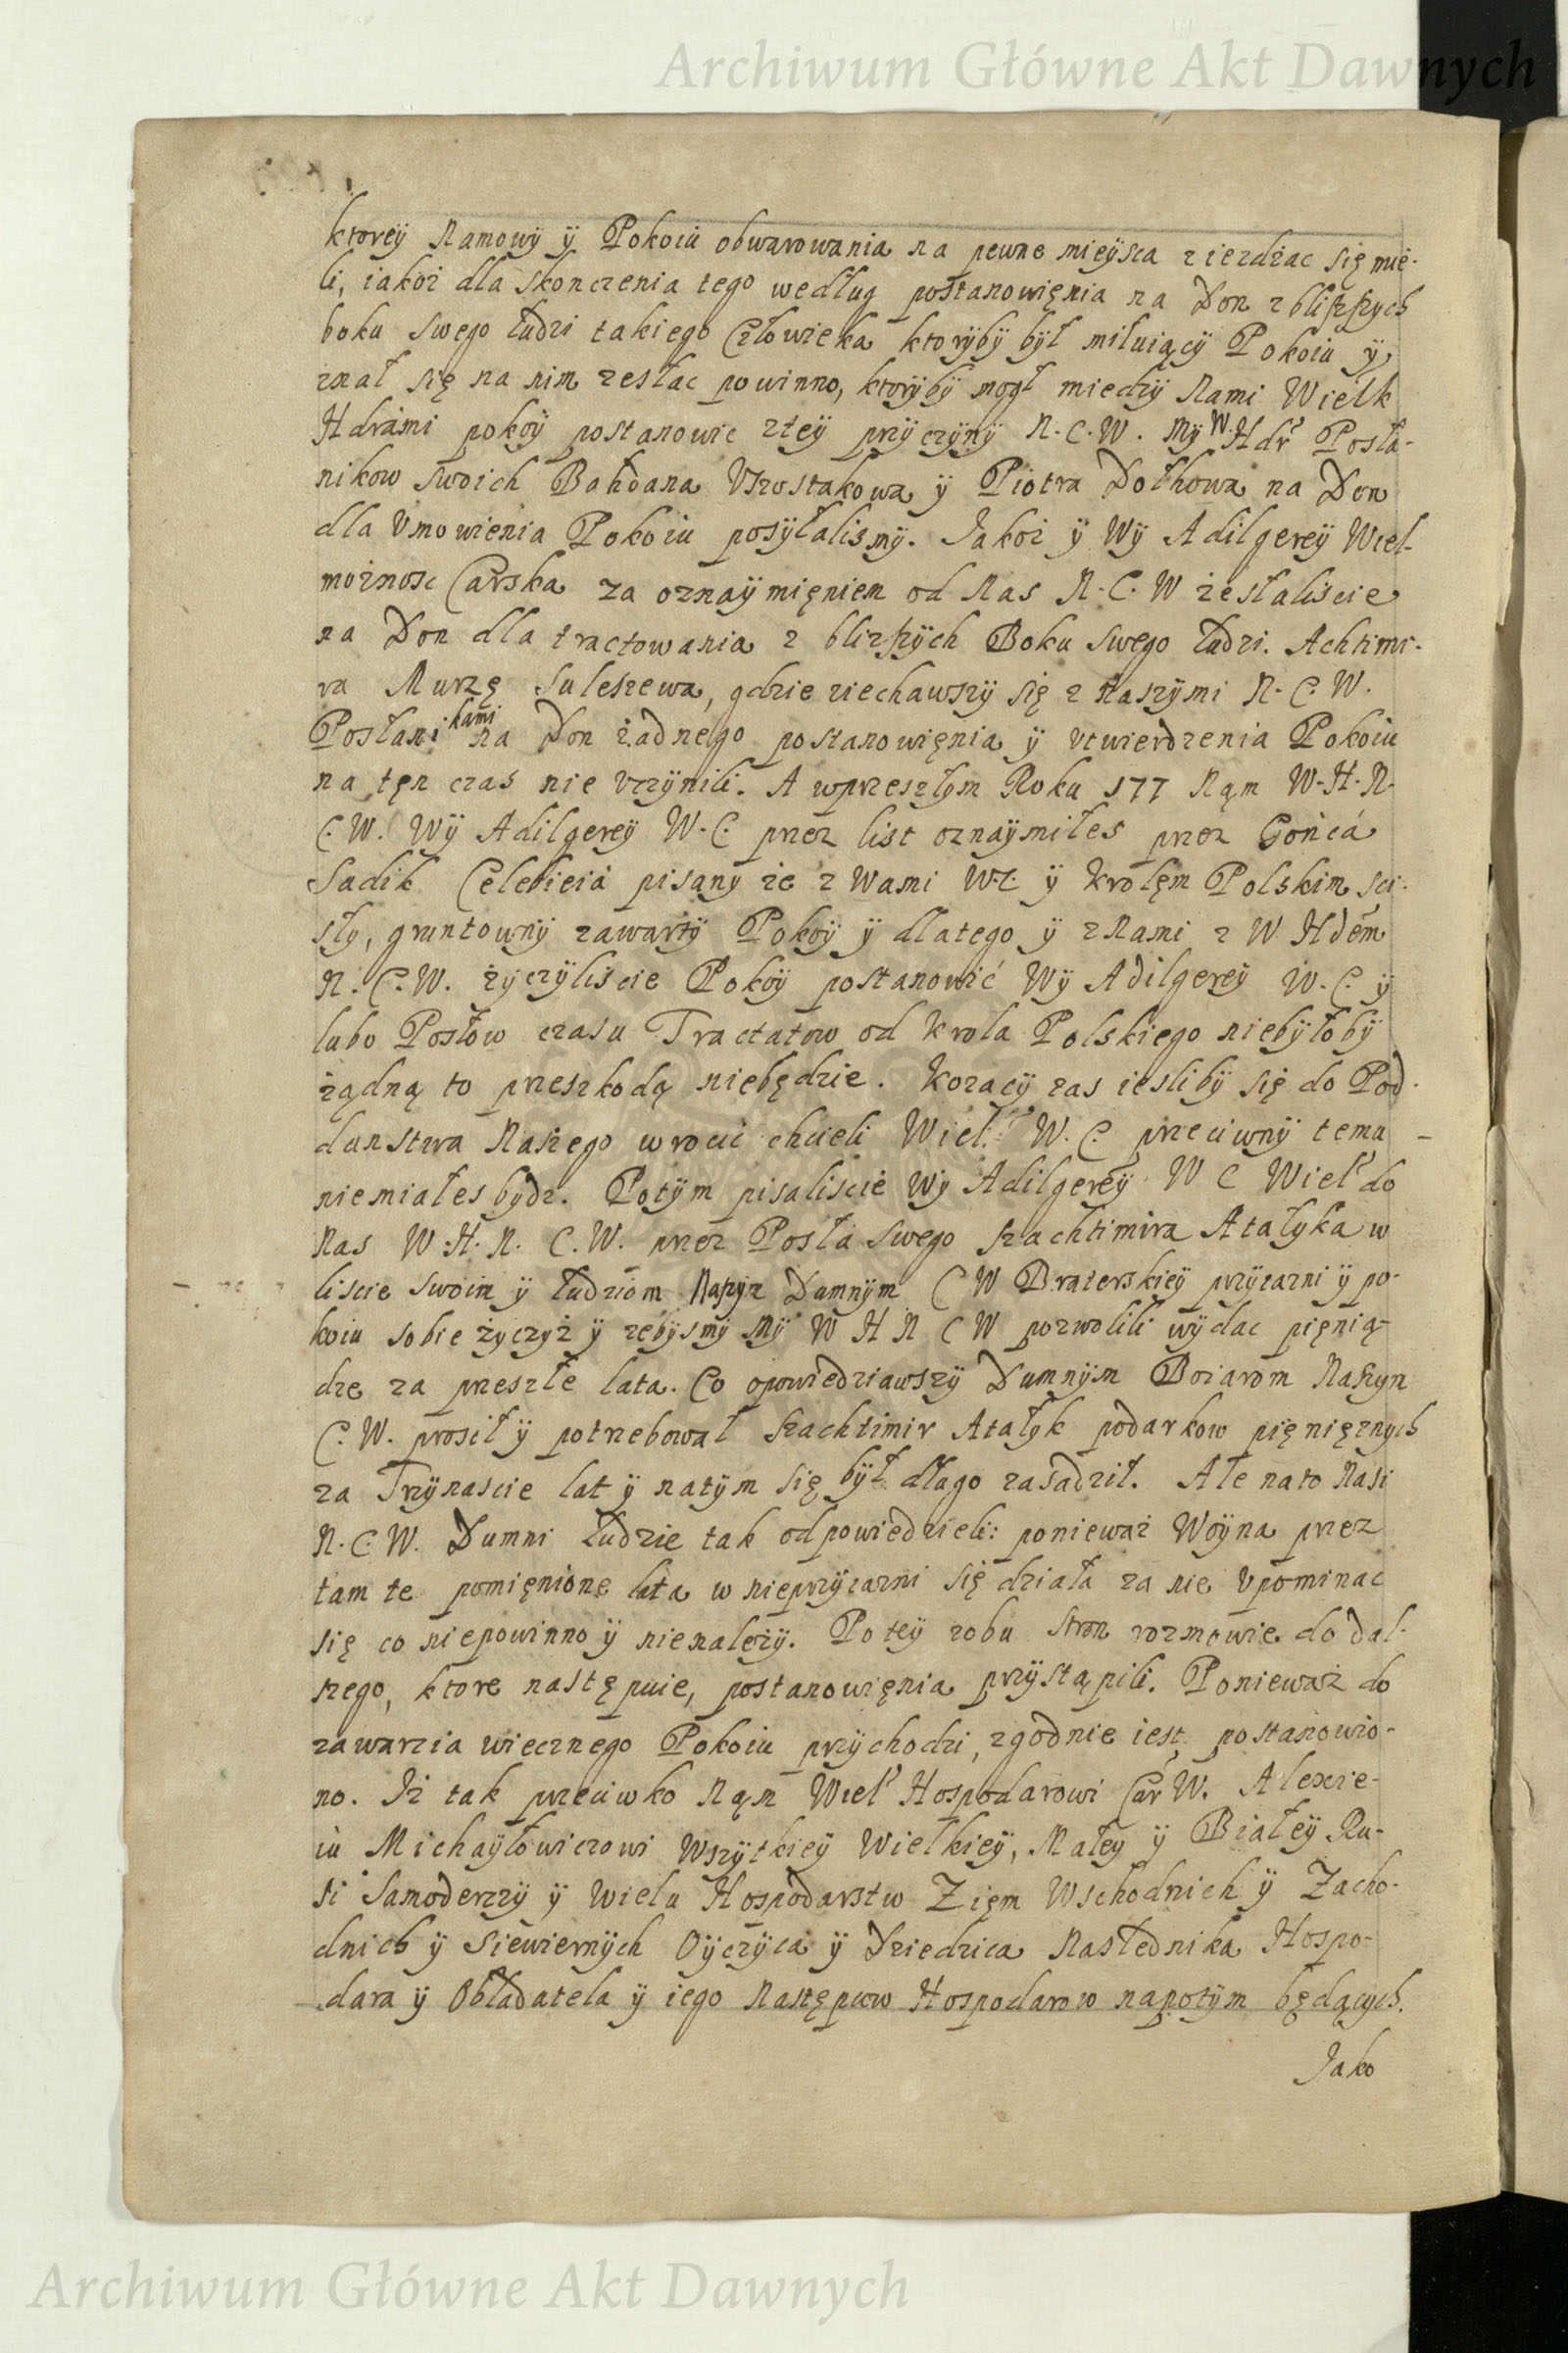 Archiwum Główne Akt Dawnych
ktoreÿ Namowÿ ÿ Pokoiu obwarowania na pewne mieÿsca zieżdżac się mie-
li, iakoż dla skonczenia tego według postanowięnia na Don z bliższych
boku swego Ludzi takiego Człowieka ktorÿbÿ bÿł miłuiącÿ Pokoiu ÿ
znał się na nim zesłac powinno, ktorÿbÿ mogł miedzÿ Nami Wielk
Hdrami pokoÿ postanowic zteÿ przÿczÿnÿ N. C. W. Mÿ W. Hdr Posła-
nikow swoich Bahdana Vszostakowa ÿ Piotra Dołhowa na Don
dla Vmowienia Pokoiu posÿłalismÿ. Jakoż ÿ Wÿ Adilgereÿ Wiel-
możnosc Carska za oznaÿmięniem od Nas N. C. W żesłaliscie
na Don dla tractowania z bliższÿch Boku swego Ludzi. Achtimi-
ra Murzę Suleszewa, gdzie ziechawszÿ się z Naszÿmi N. C. W.
Posłanikami na Don żadnego postanowięnia ÿ vtwierdzenia Pokoiu
na tęn czas nie vczÿnili. A wprzeszłym Roku 177 Nąm W. H. N.
C. W. Wÿ Adilgereÿ W. C. przez list oznaÿmiłes przez Gońca
Sadik Celebieia pisany że z Wami W. C. ÿ Krolęm Polskim sci-
sły, gruntownÿ zawartÿ Pokoÿ ÿ dlatego ÿ z Nami z W Hdem
N. C. W. życzÿliscie Pokoÿ postanowić Wÿ Adilgereÿ W. C. ÿ
lubo Posłow czasu Tractatow od Krola Polskiego niebÿłobÿ
żądną to przeszkodą niebędzie. Kozacÿ zas iesliby się do Pod-
danstwa Naszego wrocic chcieli Wiel. W. C. przeciwnÿ temu
niemiałes bydz. Potÿm pisaliscie Wÿ Adilgereÿ W C Wiel do
Nas W. H. N. C. W. przez Posła swego Szachtimira Atałyka w
liscie swoim ÿ Ludziom Naszÿm Dumnÿm C W Braterskieÿ przÿiazni ÿ po-
koiu sobie życzÿż ÿ żebÿsmÿ Mÿ W H N C W pozwolili wÿdac pięnią-
dze za przeszłe lata. Co opowiedziawszÿ Dumnÿm Boiarom Naszÿm
C. W. prosił ÿ potrzebował Szachtimir Atałyk podarkow pięnięznych
za Trzÿnascie lat ÿ natÿm się bÿł długo zasadził. Ale nato Nasi
N. C. W. Dumni Ludzie tak odpowiedzieli: ponieważ Woÿna przez
tam te pomięnione lata w nieprzÿiazni się działa za nie vpominac
się co niepowinno ÿ nienależÿ. Po teÿ zobu stron rozmowie do dal-
szego, ktore następuie, postanowięnia przÿstąpili. Ponieważ do
zawarzia wiecznego Pokoiu przÿchodzi, zgodnie iest postanowio-
no. Iż tak przeciwko Nąm Wiel Hospodarowi Car W. Alexie-
iu Michaÿłowiczowi Wszÿtkieÿ Wielkieÿ, Małey ÿ Białeÿ Ru-
si Samoderzzÿ ÿ wielu Hospodarstw Zięm Wschodnich ÿ Zacho-
dnich ÿ siewiernÿch Oÿczÿca ÿ Dziedzica Naslednika Hospo-
dara ÿ Obładatela ÿ iego Następcow Hospodarow napotÿm będących.
Jako
Archiwum Główne Akt Dawnych